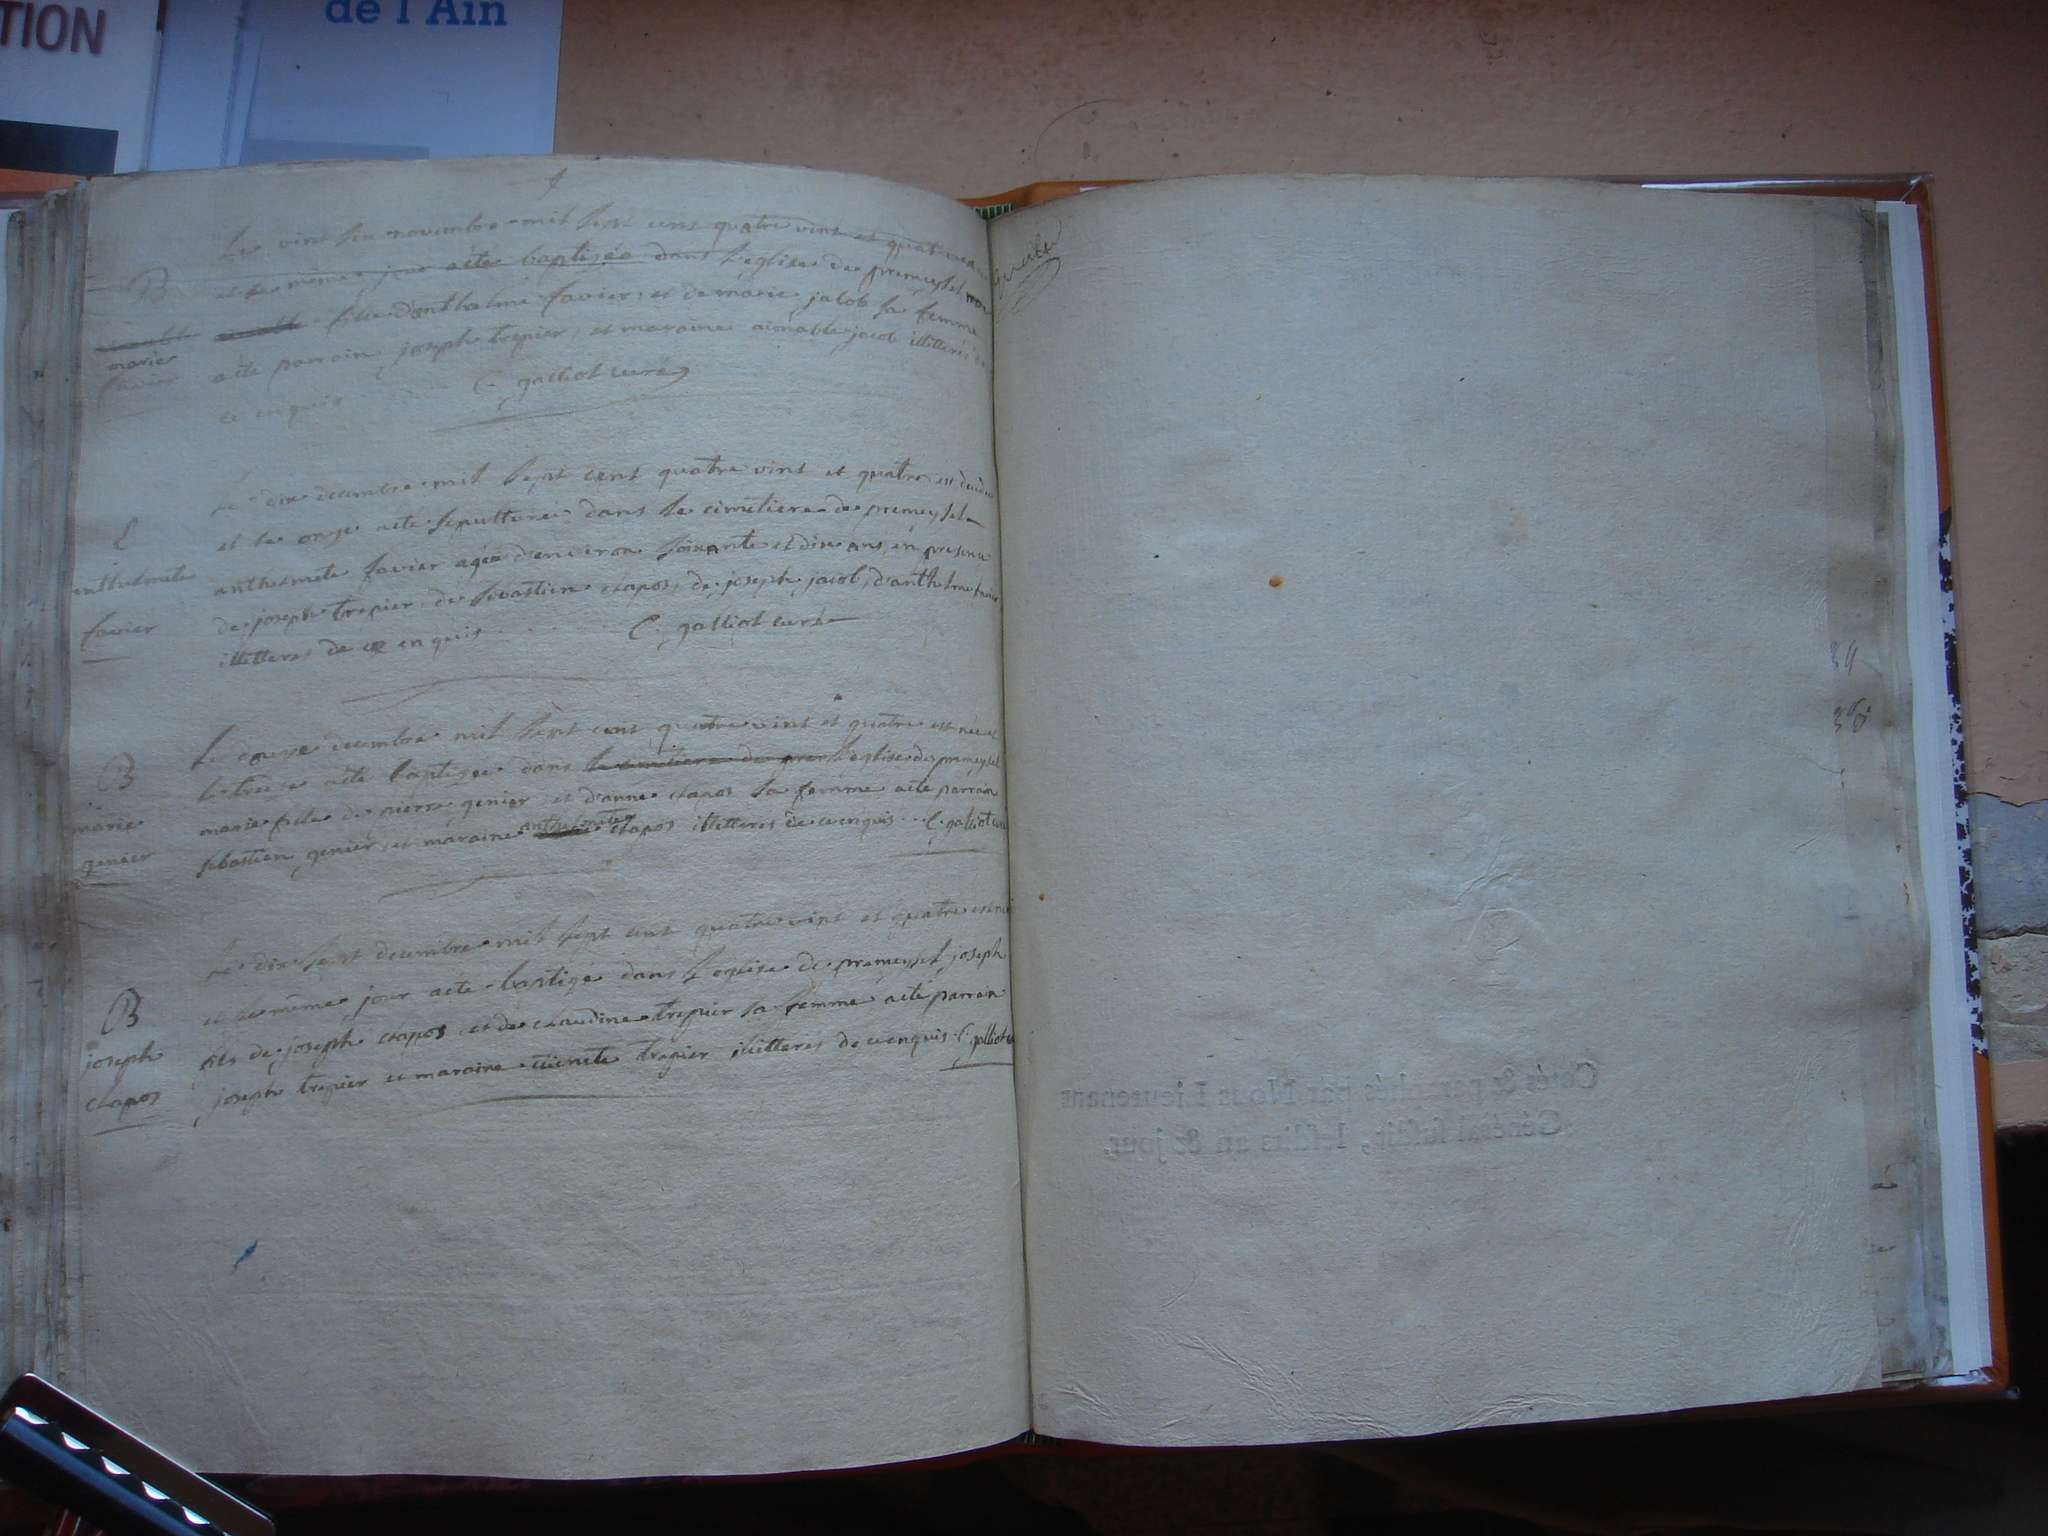 TION
de l'Ain
Le vint six novembre mil sept cent quatre vint et quatre
et le même jour aété baptisée dans l'eglise de premeyzel
fille d'anthelme favier, et de marie jacob sa femme
aété parrain joseph trepier, et maraine aimable jacob illitteres
de enquis C. galliot curé
B
marie
favier
Le dix decembre mil sept cent quatre vint et quatre est decedée
et le onze aété sepulturée dans le cimetiere de premeyzel
anthelmete favier agée d'environ soixante et dix ans, en presence
de joseph trepier, de sebastien chapos, de joseph jacob, d'anthelme favier
illitteres de ce enquis C. galliot curé
anthelmete
favier
Le decembre mil sept cent quatre vint et quatre est née et
le treize aété baptizée dans le cimetiere de prem l'eglise de premeyzel
marie fille de pierre genier et d'anne chapos sa femme aété parrain
sebastien genier, et maraine anthelmete chapos illitteres de ce enquis C. galliot curé
B
marie
genier
Le dix sept decembre mil sept cent quatre vint et quatre est né
et le même jour aété baptizé dans l'eglise de premeyzel joseph
fils de joseph chapos et de claudine trepier sa femme aété parrain
joseph trepier et maraine trepier illitteres de ce enquis C. galliot
B
joseph
chapos
39
38
Cotés & paraphés par Nous Lieutenant
Général susdit, lesdits an & jour.